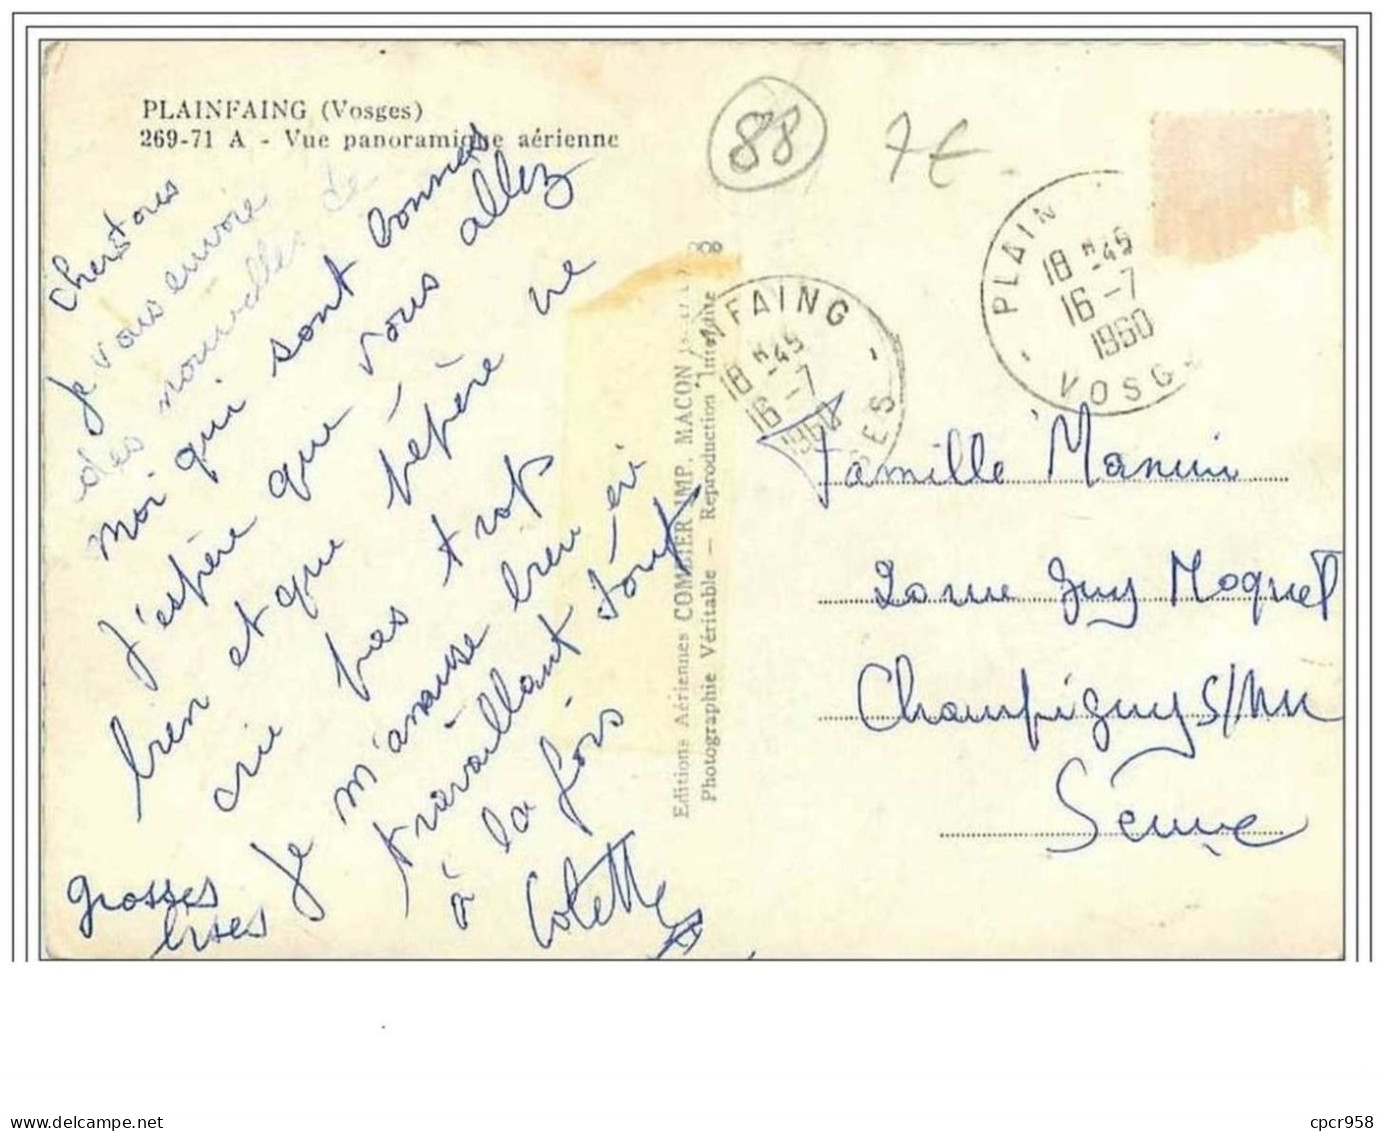 PLAINFAING (Vosges)
269-71 A - Vue panoramique aérienne
88
7€
Chers tous
Je vous envoie de
des nouvelles de
moi qui sont bonnes
J'espère que vous allez
bien et que pépère ne
crie pas trop
Je m'amuse bien en
travaillant tout
à la fois
grosses
bises
Colette
Editions Aériennes COMBIER IMP. MACON
Photographie Véritable — Reproduction Interdite
PLAINFAING
18 H 45
16-7
1960
VOSGES
PLAIN
18 H 45
16-7
1960
VOSG
Famille
Guy Moquet
Champigny S/
Seine
cpcr958